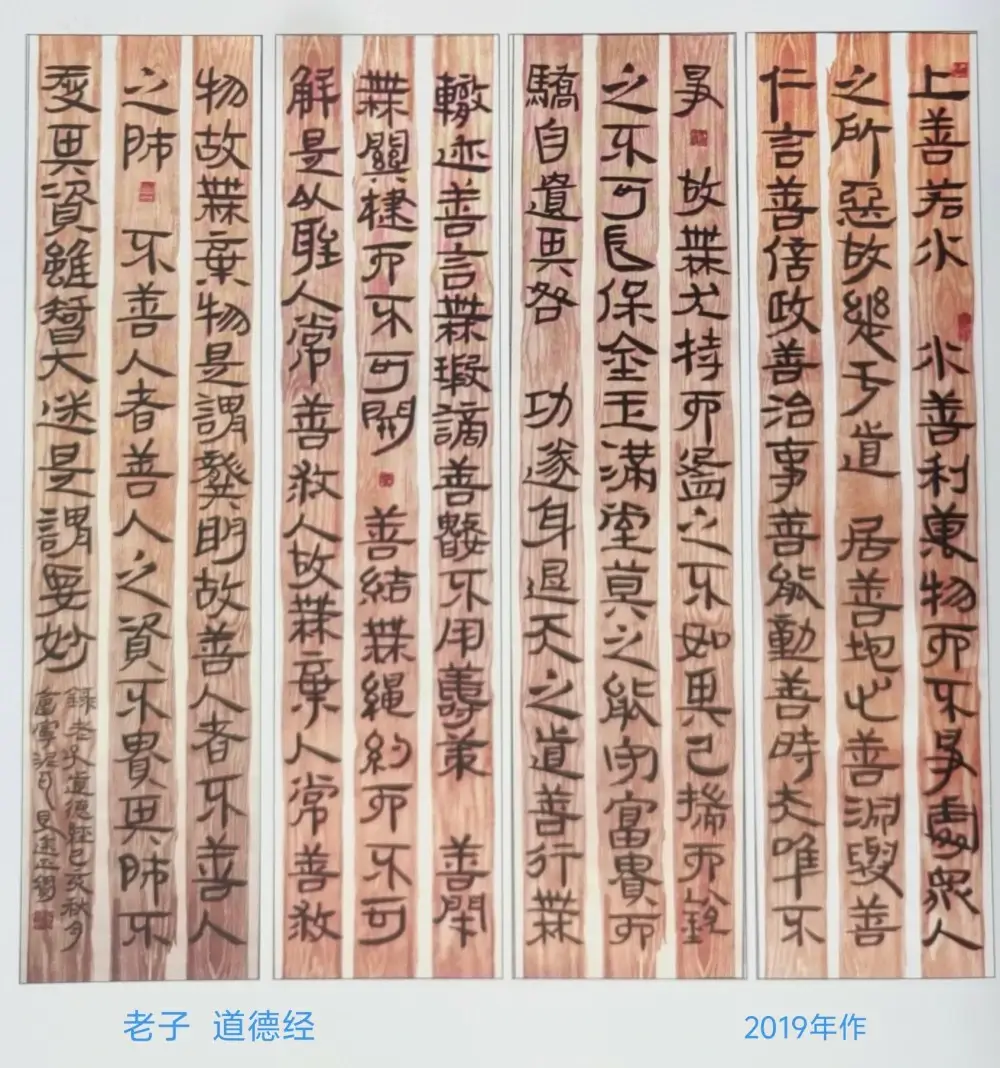 上善若水 水善利萬物而不爭處眾人
之所惡故幾于道 居善地心善淵與善
仁言善信政善治事善能動善時夫唯不
爭 故無尤持而盈之不如其已揣而銳
之不可長保金玉滿室莫之能守富貴而
驕自遺其咎 功遂身退天之道善行無
轍迹善言無瑕謫善數不用籌策 善閉
無關楗而不可開 善結無繩約而不可
解是以聖人常善救人故無棄人常善救
物故無棄物是謂襲明故善人者不善人
之師 不善人者善人之資不貴其師不
愛其資雖智大迷是謂要妙
錄老子道德經己亥秋月
老子 道德经
2019年作